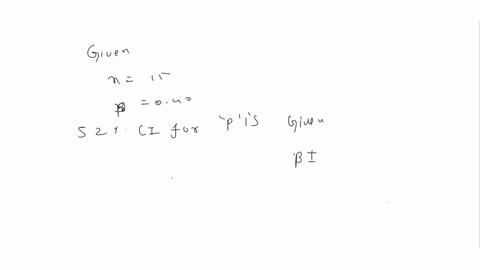 Given
n = 15
p = 0.40
52% CI for 'p' is Given
p̂ ±